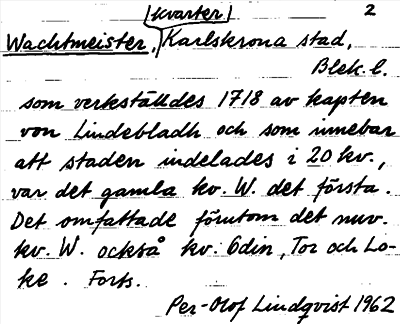 |kvarter| 2
Wachtmeister, Karlskrona stad,
Blek. l.
som verkställdes 1718 av kapten
von Lindebladh och som innebar
att staden indelades i 20 kv.,
var det gamla kv. W. det första.
Det omfattade förutom det nuv.
kv. W. också kv. Odin, Tor och Lo-
ke. Forts.
Per-Olof Lindqvist 1962